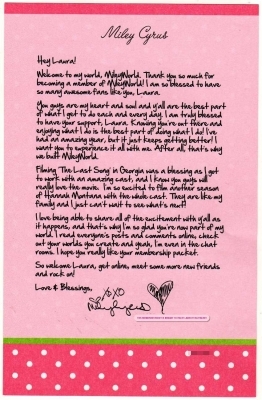 Miley Cyrus
Hey Laura!
Welcome to my world, MileyWorld. Thank you so much for
becoming a member of MileyWorld! I am so blessed to have
so many awesome fans like you, Laura.
You guys are my heart and soul and y'all are the best part
of what I get to do each and every day. I am truly blessed
to have your support, Laura. Knowing you're out there and
enjoying what I do is the best part of doing what I do! I've
had an amazing year, but it just keeps getting better! I
want you to experience it all with me. After all, that's why
we built MileyWorld.
Filming 'The Last Song' in Georgia was a blessing as I got
to work with an amazing cast, and I know you guys will
really love the movie. I'm so excited to film another season
of Hannah Montana with the whole cast. They are like my
family and I just can't wait to see what's next!
I love being able to share all of the excitement with y'all as
it happens, and that's why I'm so glad you're now part of my
world. I read everyone's posts and comments online, check
out your worlds you create and yeah, I'm even in the chat
rooms. I hope you really like your membership packet.
So welcome Laura, get online, meet some more new friends
and rock on!
Love & Blessings,
XOXO
Miley Cyrus